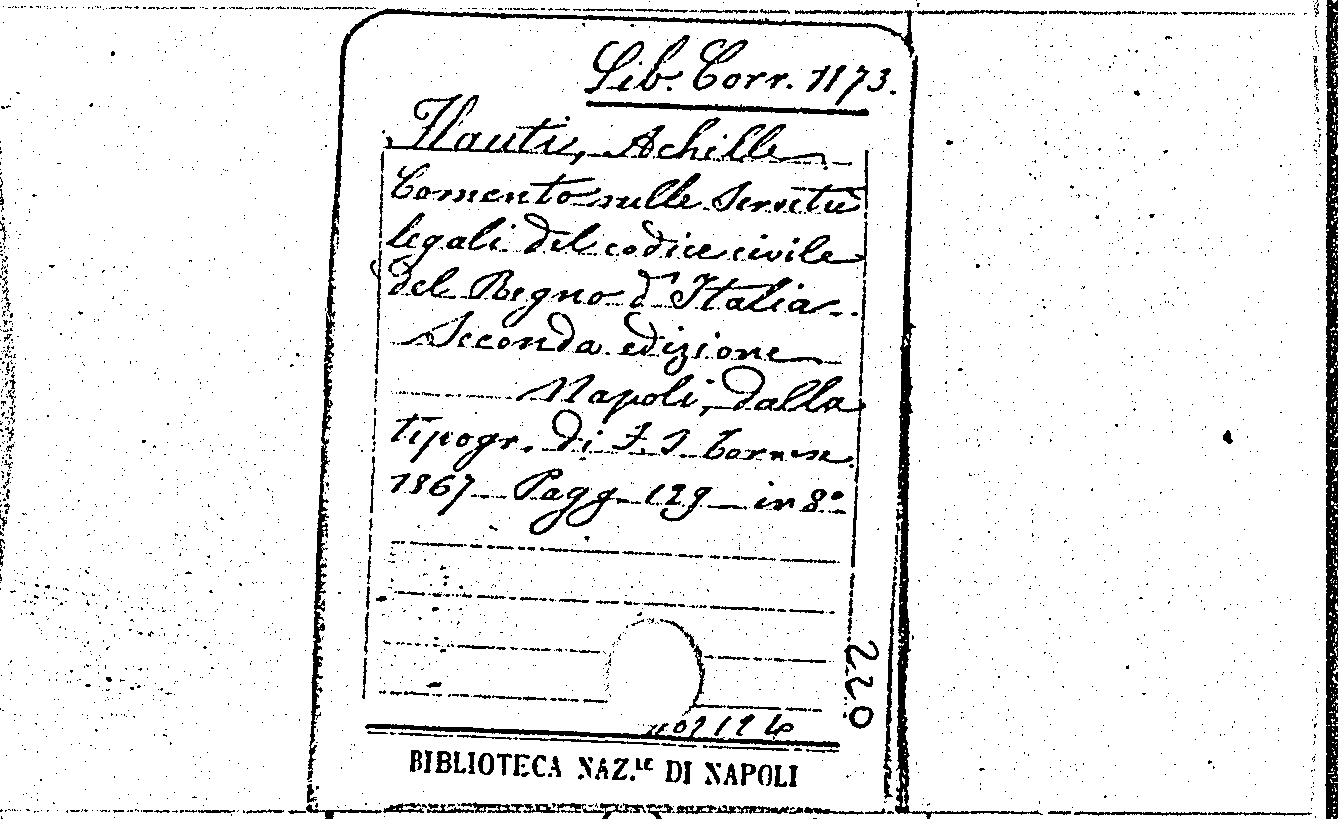 Lib. Corr. 1173.
Flauti, Achille
Comento sulle servitù
legali del codice civile
del Regno d'Italia.
Seconda edizione
Napoli, dalla
tipogr. di F. S. Tornese
1867 Pagg. 129 in 8°
220
BIBLIOTECA NAZ.LE DI NAPOLI